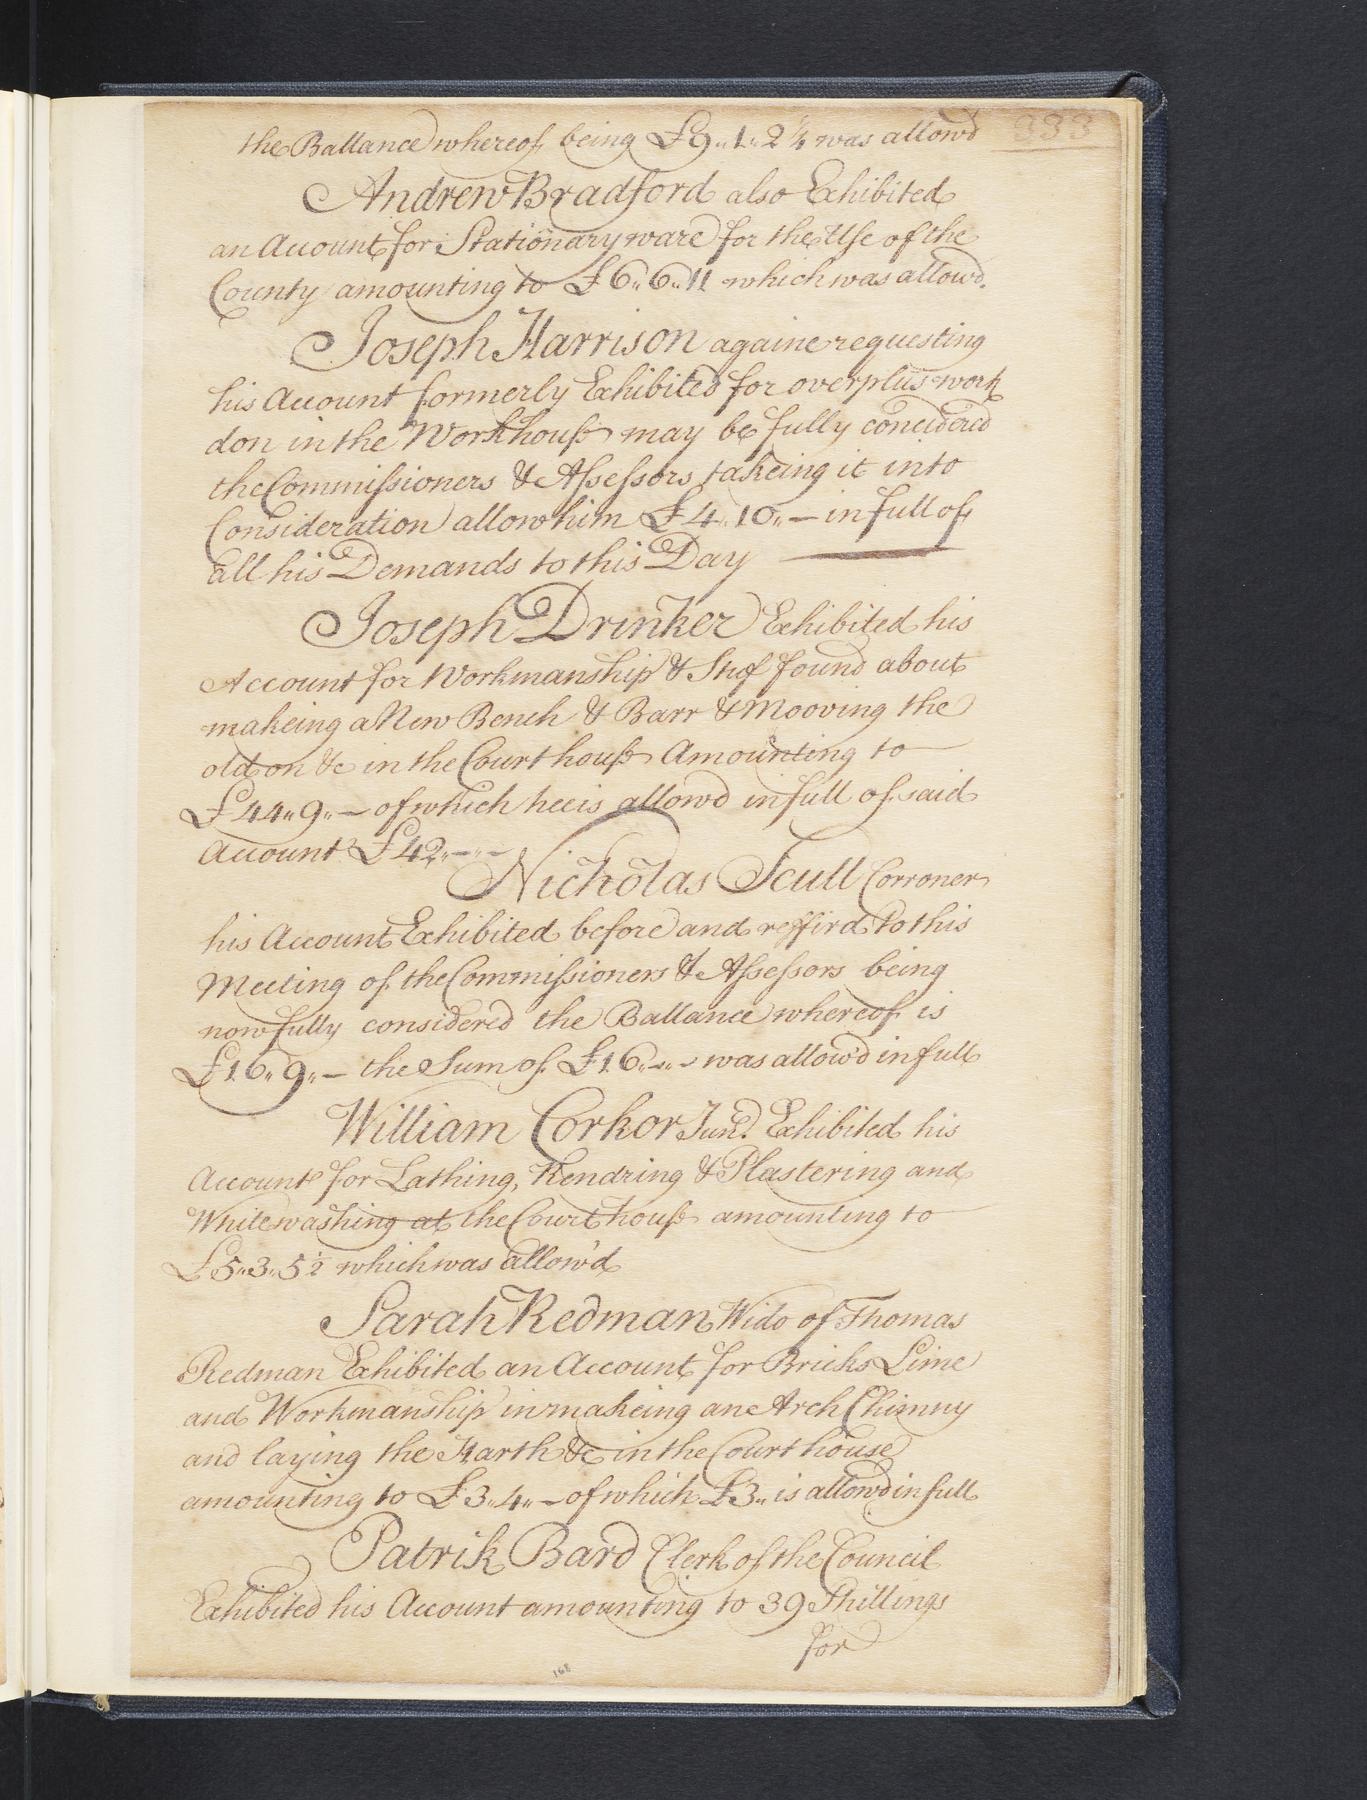 333
the Ballance whereof being £9,,1,,2¼ was allowd
Andrew Bradford also Exhibited
an Account for Stationary ware for the Use of the
County amounting to £6,,6,,11 which was allowd.
Joseph Harrison againe requesting
his Account formerly Exhibited for overplus work
don in the Workhouse may be fully concidered
the Commissioners & Assessors takeing it into
Consideration allow him £4,,10,,– in full of
all his Demands to this Day
Joseph Drinker Exhibited his
Account for Workmanship & Stuf found about
makeing a New Bench & Barr & Mooving the
old on &c in the Court house Amounting to
£44,,9,,– of which hee is allowd in full of said
Account £42,,–,,–
Nicholas Scull Corroner
his Account Exhibited before and reffird to this
Meeting of the Commissioners & Assessors being
now fully considered the Ballance whereof is
£16,,9,,– the Sum of £16,,–,,– was allow'd in full
William Corkor Junr. Exhibited his
Account for Lathing, Rendring & Plastering and
Whitewashing at the Court house amounting to
£5,,3,,5½ which was allow'd
Sarah Redman Wido of Thomas
Redman Exhibited an Account for Bricks Lime
and Workmanship in makeing an Arch Chimny
and laying the Harth &c in the Court house
amounting to £3,,4,,– of which £3,, is allowd in full
Patrik Bard Clerk of the Council
Exhibited his Account amounting to 39 Shillings
for
168